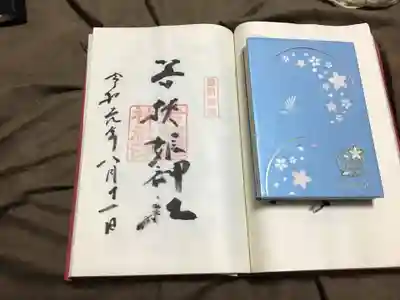 若狭姫神社
令和元年八月十一日